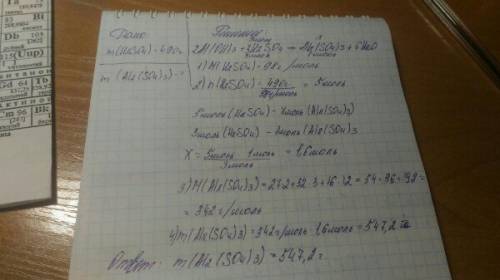 Дано:
m(H2SO4) = 490г
m(Al2(SO4)3) - ?
Решение
3моль
2Al(OH)3 + 3H2SO4 → Al2(SO4)3 + 6H2O
3моль
1) M(H2SO4) = 98г/моль
2) n(H2SO4) = 490г / 98г/моль = 5моль
5моль (H2SO4) - x моль (Al2(SO4)3)
3моль (H2SO4) - 1моль (Al2(SO4)3
X = 5моль · 1моль / 3моль = 1,6моль
3) M(Al2(SO4)3) = 27·2 + 32·3 + 16·12 = 54 + 96 + 192 =
= 342г/моль
4) m(Al2(SO4)3) = 342г/моль · 1,6моль = 547,2г
Ответ: m(Al2(SO4)3) = 547,2г